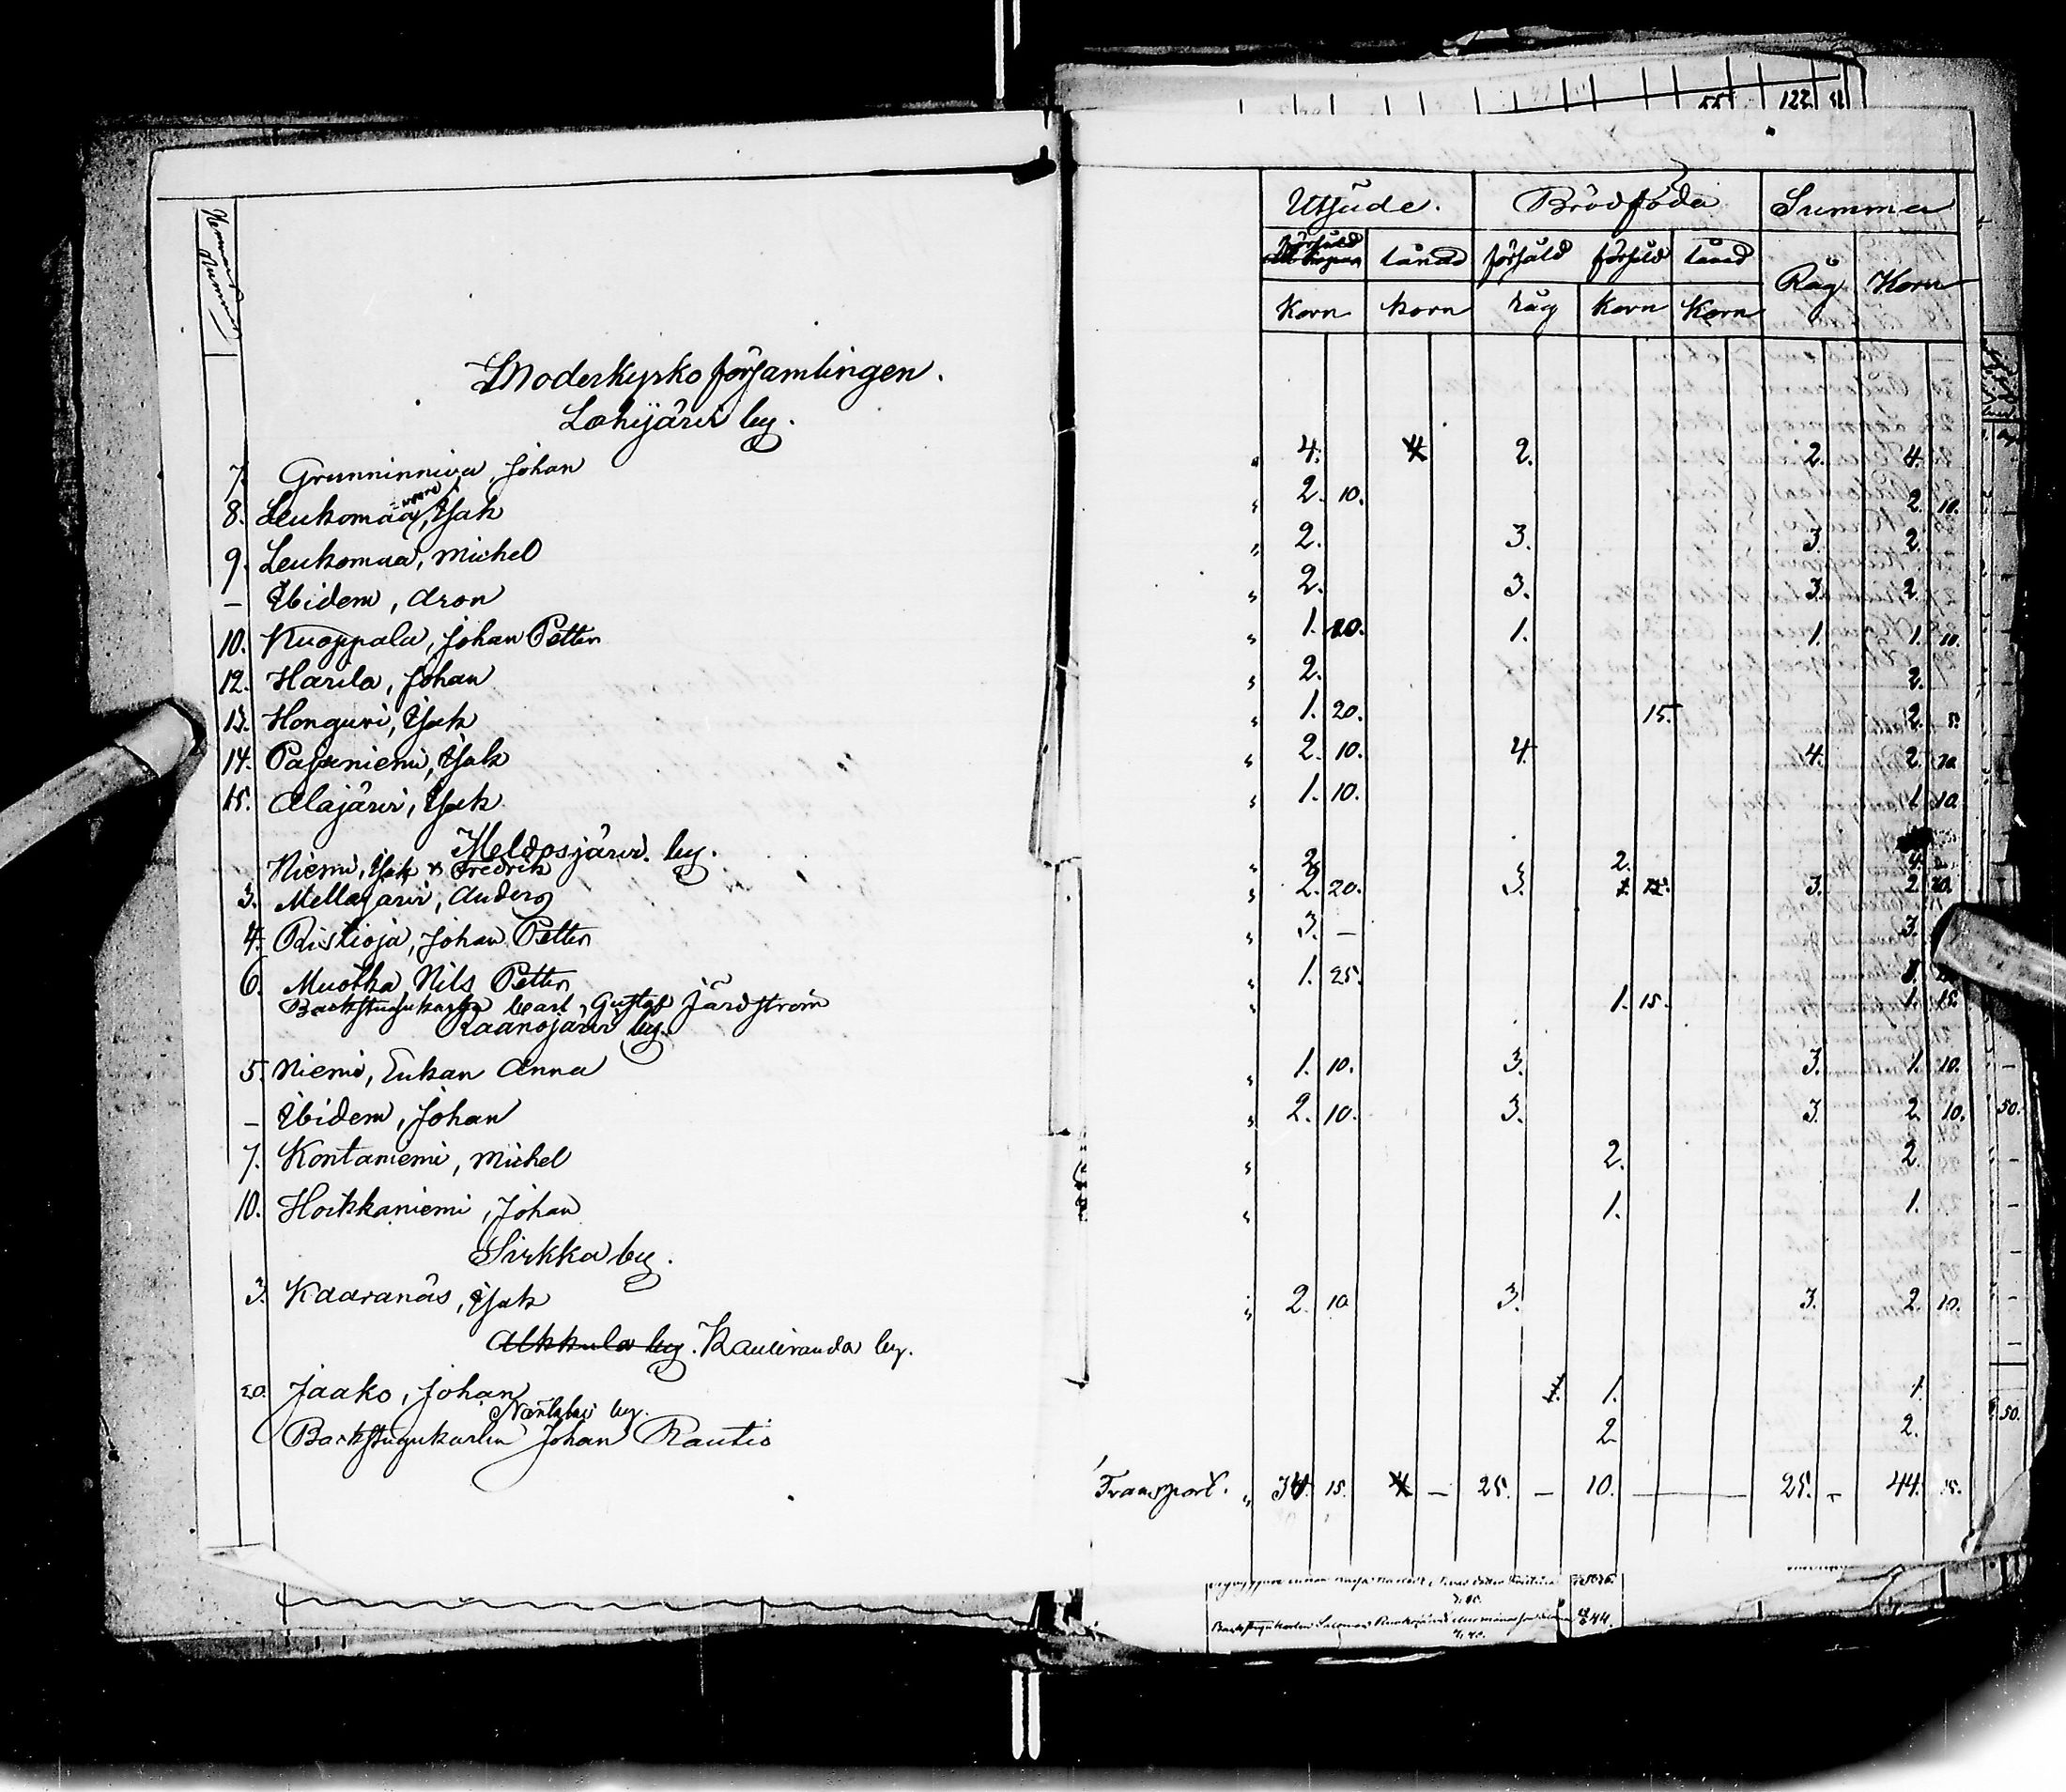 55 122
Utsäde. Brödföda Summa
försåld lånad försåld försåld lånad Råg Korn
Korn Korn råg Korn Korn
Hemmans Nummer
Moderkyrko församlingen.
Lohijärvi by.
7. Grunninniva, Johan „ 4. 4 2. 2. 4.
8. Leukomaa, Isak „ 2. 10. 2. 10.
9. Leukomaa, Michel „ 2. 3. 3. 2.
– Ibidem, Aron „ 2. 3. 3. 2.
10. Kuoppala, Johan Petter „ 1. 20. 1. 1. 1. 10.
12. Harila, Johan „ 2. 2.
13. Honguri, Isak „ 1. 20. 15. 2. 5.
14. Pajaniemi, Isak „ 2. 10. 4. 4. 2. 10.
15. Alajärvi, Isak „ 1. 10. 1. 10.
Meldosjärvi by.
Niemi, Isak & Fredrik „ 2. 2. 4.
3. Mellajärvi, Anders „ 2. 20. 3. 3. 2. 20.
4. Ristioja, Johan Petter „ 3. – 3.
6. Muotka, Nils Petter „ 1. 25.
Backstugukarlen Carl Gustaf Järdström „ 1. 15. 1. 15.
Raanojärvi by.
5. Niemi, Enkan Anna „ 1. 10. 3. 3. 1. 10.
– Ibidem, Johan „ 2. 10. 3. 3. 2. 10.
7. Kontaniemi, Michel „ 2. 2.
10. Hoikkaniemi, Johan „ 1. 1.
Sirkka by.
3. Kaaranäs, Isak „ 2. 10 3. 3. 2. 10.
Alkkula by. Kauliranda by.
20. Jaako, Johan 1. 1.
by.
Backstugukarlen Johan Rautio 2 2.
Transport. „ 34. 15. 4 – 25. – 10. – 25. – 44. 15.
Backstugukarlen Salomon 44.